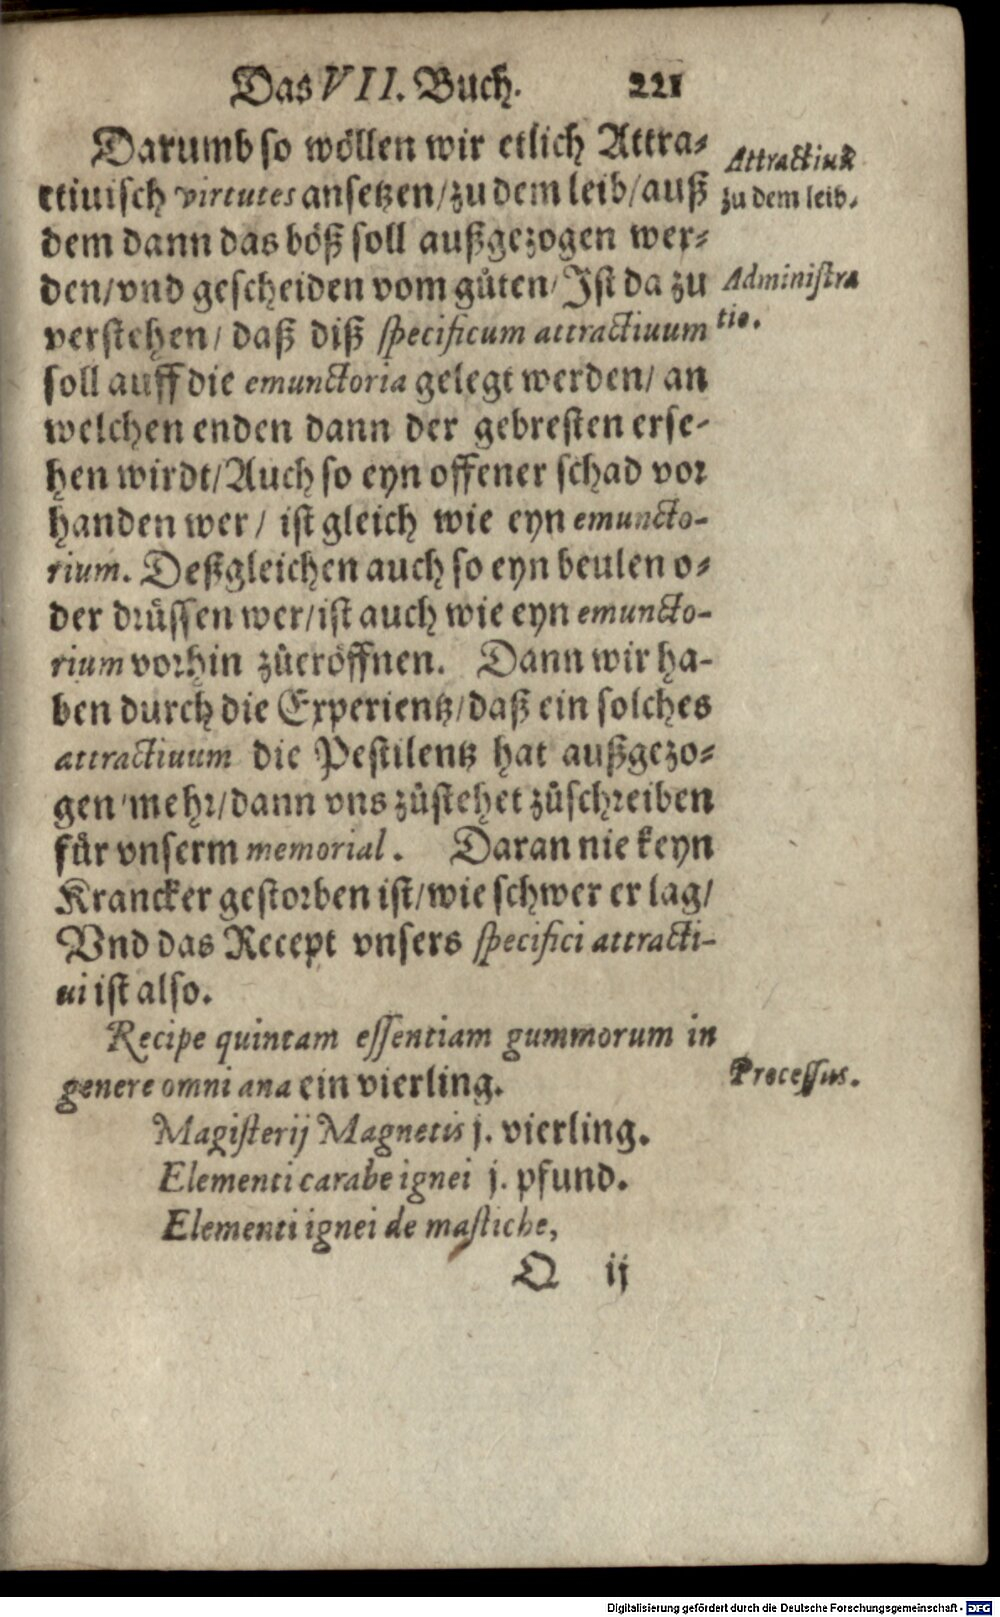 Das VII. Buch. 221
Darumb so wöllen wir etlich Attra⸗
ctiuisch virtutes ansetzen/zu dem leib/auß
dem dann das böß soll außgezogen wer⸗
den/vnd gescheiden vom gůten/Ist da zu
verstehen/ daß diß specificum attractiuum
soll auff die emunctoria gelegt werden/ an
welchen enden dann der gebresten erse-
hen wirdt/Auch so eyn offener schad vor
handen wer/ ist gleich wie eyn emuncto-
rium. Deßgleichen auch so eyn beulen o⸗
der drüssen wer/ist auch wie eyn emuncto-
rium vorhin zůeröffnen. Dann wir ha-
ben durch die Experientz/daß ein solches
attractiuum die Pestilentz hat außgezo⸗
gen/mehr/dann vns zůstehet zůschreiben
für vnserm memorial. Daran nie keyn
Krancker gestorben ist/wie schwer er lag/
Vnd das Recept vnsers specifici attracti-
ui ist also.
Recipe quintam essentiam gummorum in
genere omni ana ein vierling.
Magisterij Magnetis j. vierling.
Elementi carabe ignei j. pfund.
Elementi ignei de mastiche,
Q ij
zu dem leib.
Administra
tio.
Processus.
Digitalisierung gefördert durch die Deutsche Forschungsgemeinschaft - DFG